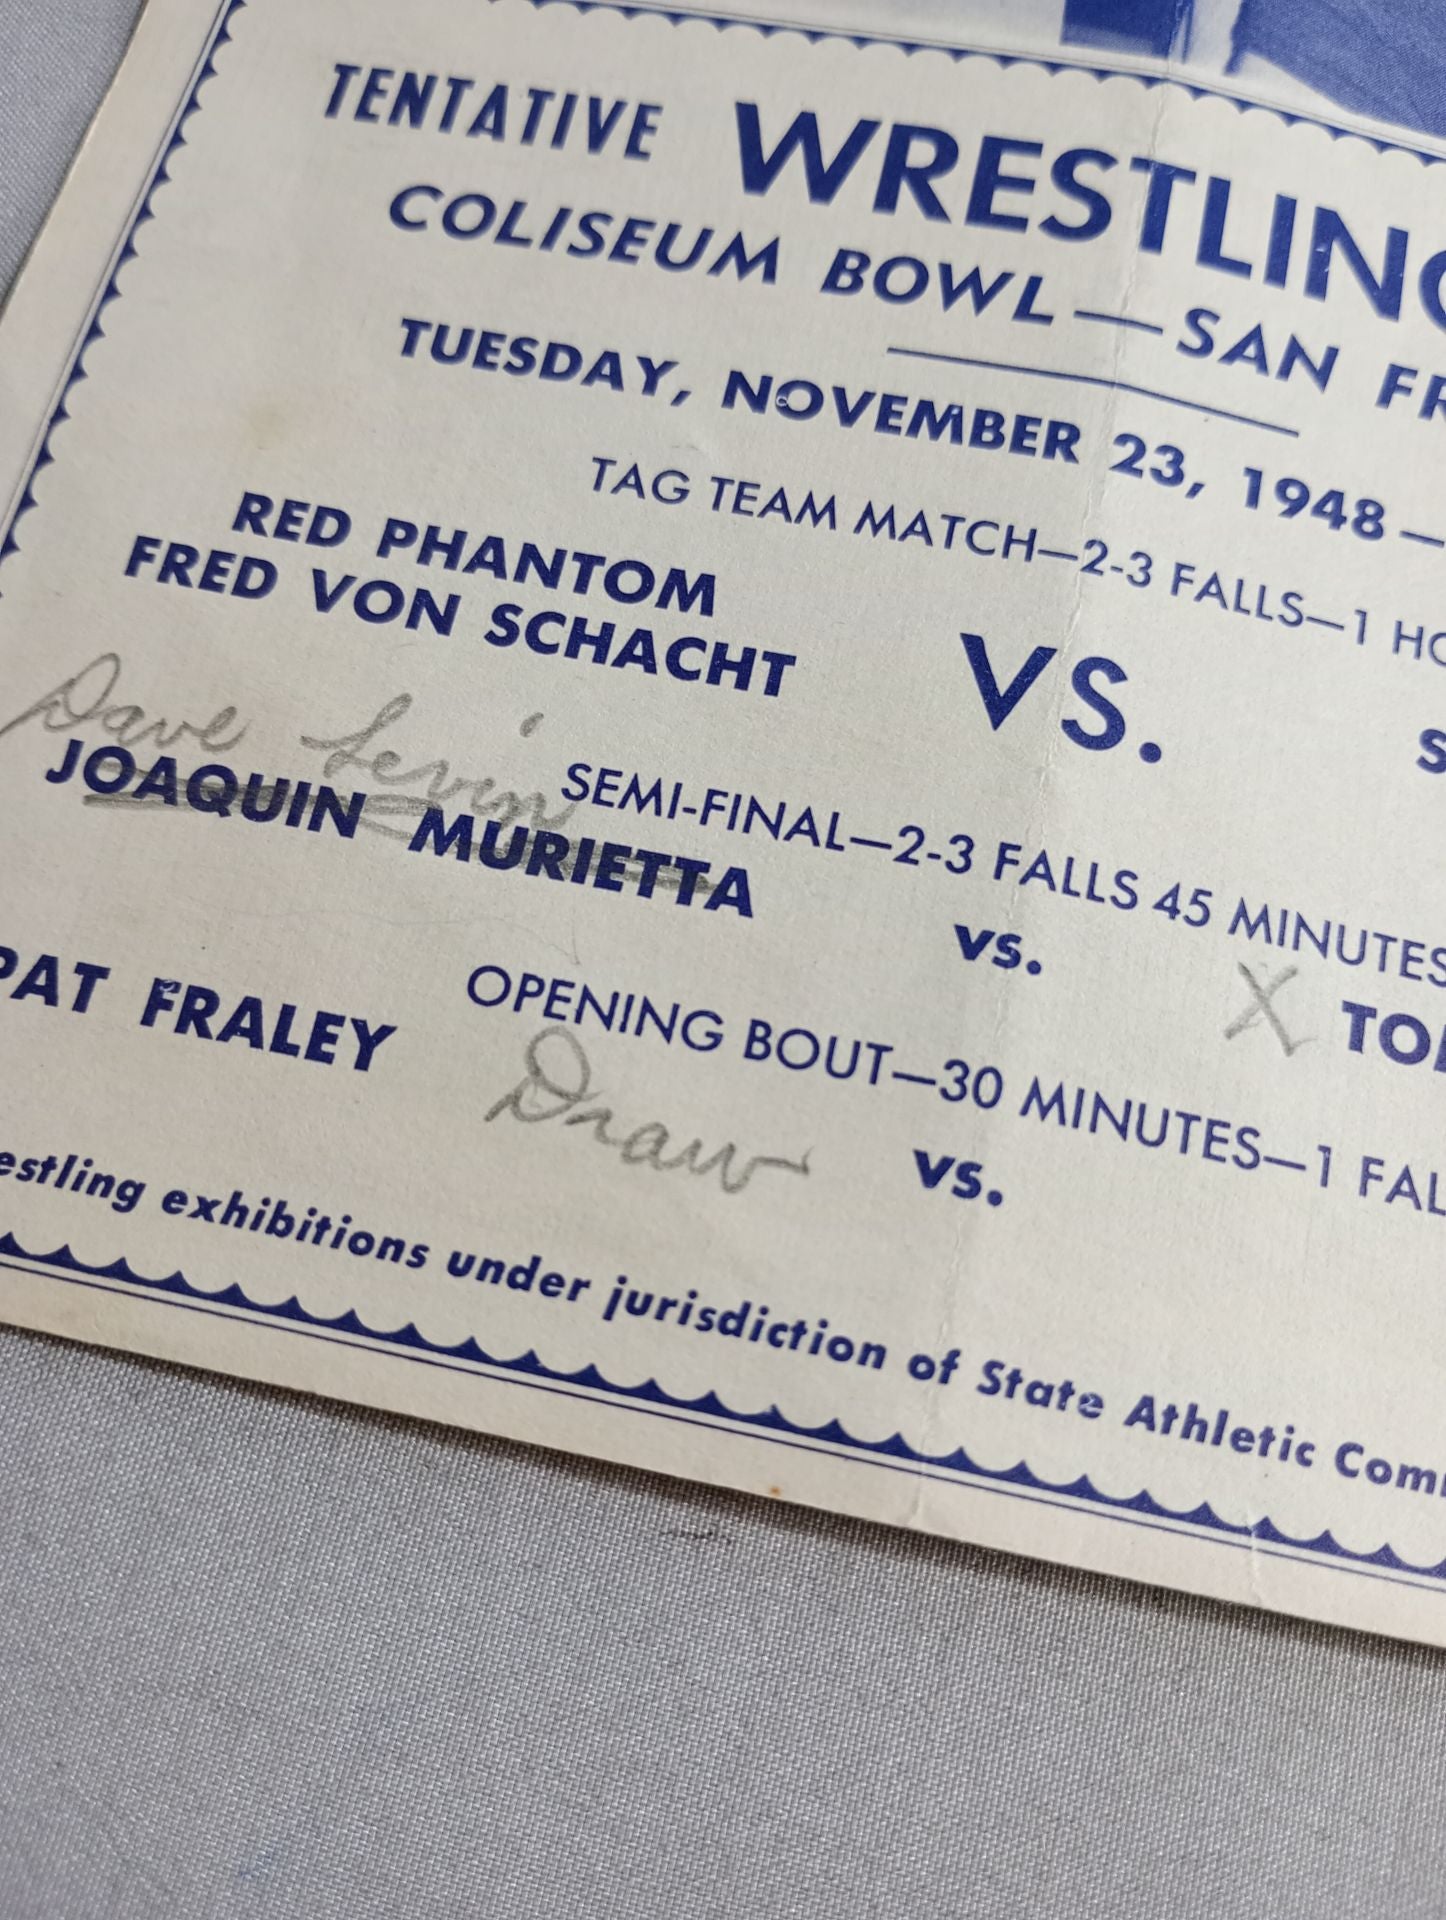 TENTATIVE WRESTLING
COLISEUM BOWL—SAN FR
TUESDAY, NOVEMBER 23, 1948—
TAG TEAM MATCH—2-3 FALLS—1 HO
RED PHANTOM
FRED VON SCHACHT
VS.
S
Dave Levin
SEMI-FINAL—2-3 FALLS 45 MINUTES
JOAQUIN MURIETTA
vs.
X TO
OPENING BOUT—30 MINUTES—1 FAL
PAT FRALEY
Draw
vs.
estling exhibitions under jurisdiction of State Athletic Com